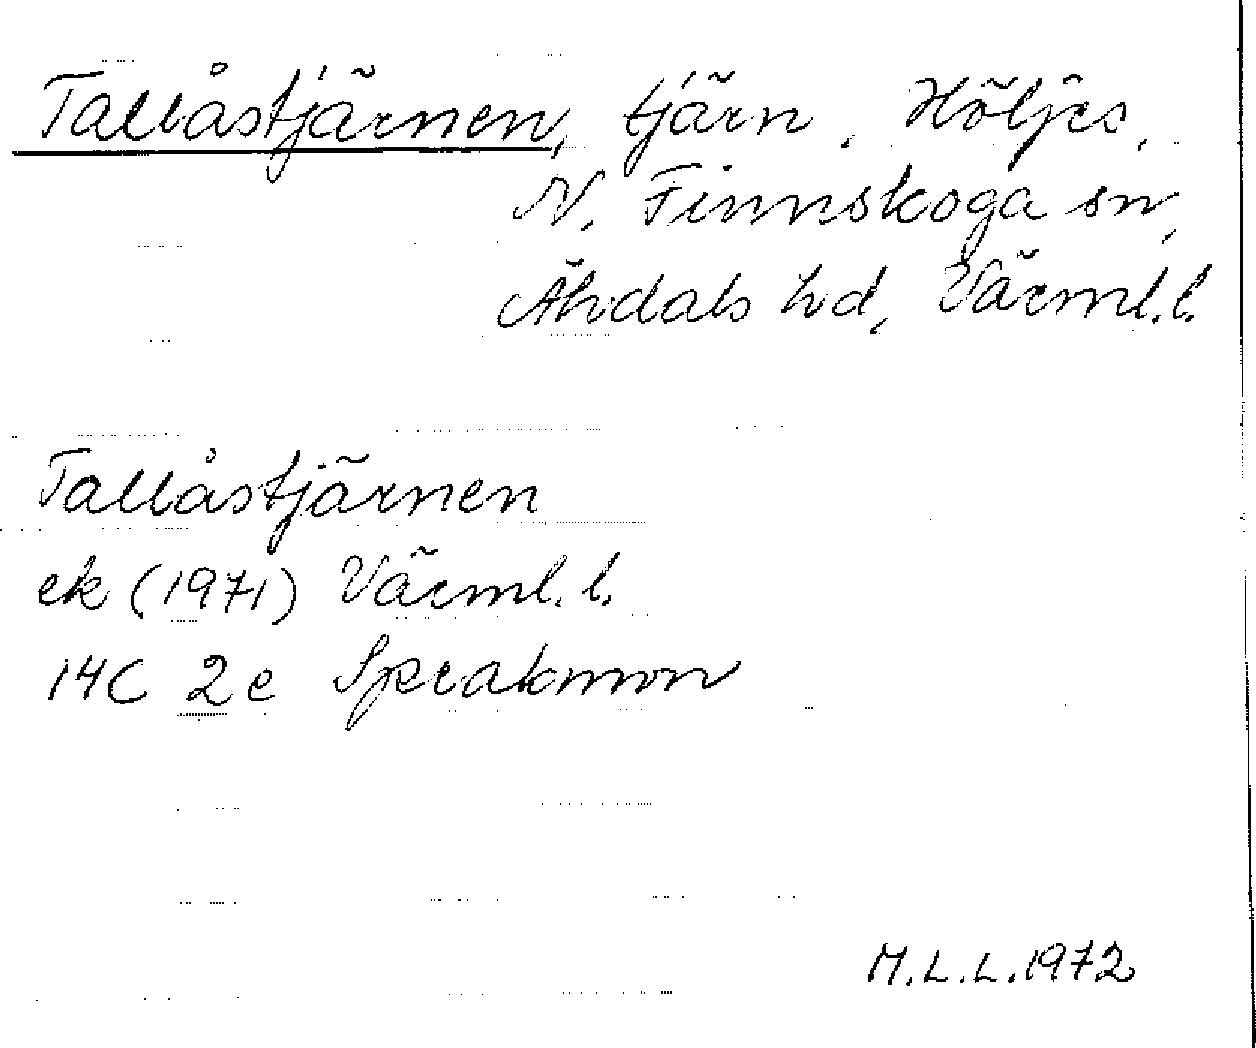 Tallåstjärnen, tjärn, Höljes,
N. Finnskoga sn,
Älvdals hd, Värml. l.
Tallåstjärnen
ek (1971) Värml. l.
14C 2e Sprakmon
M.L.L. 1972